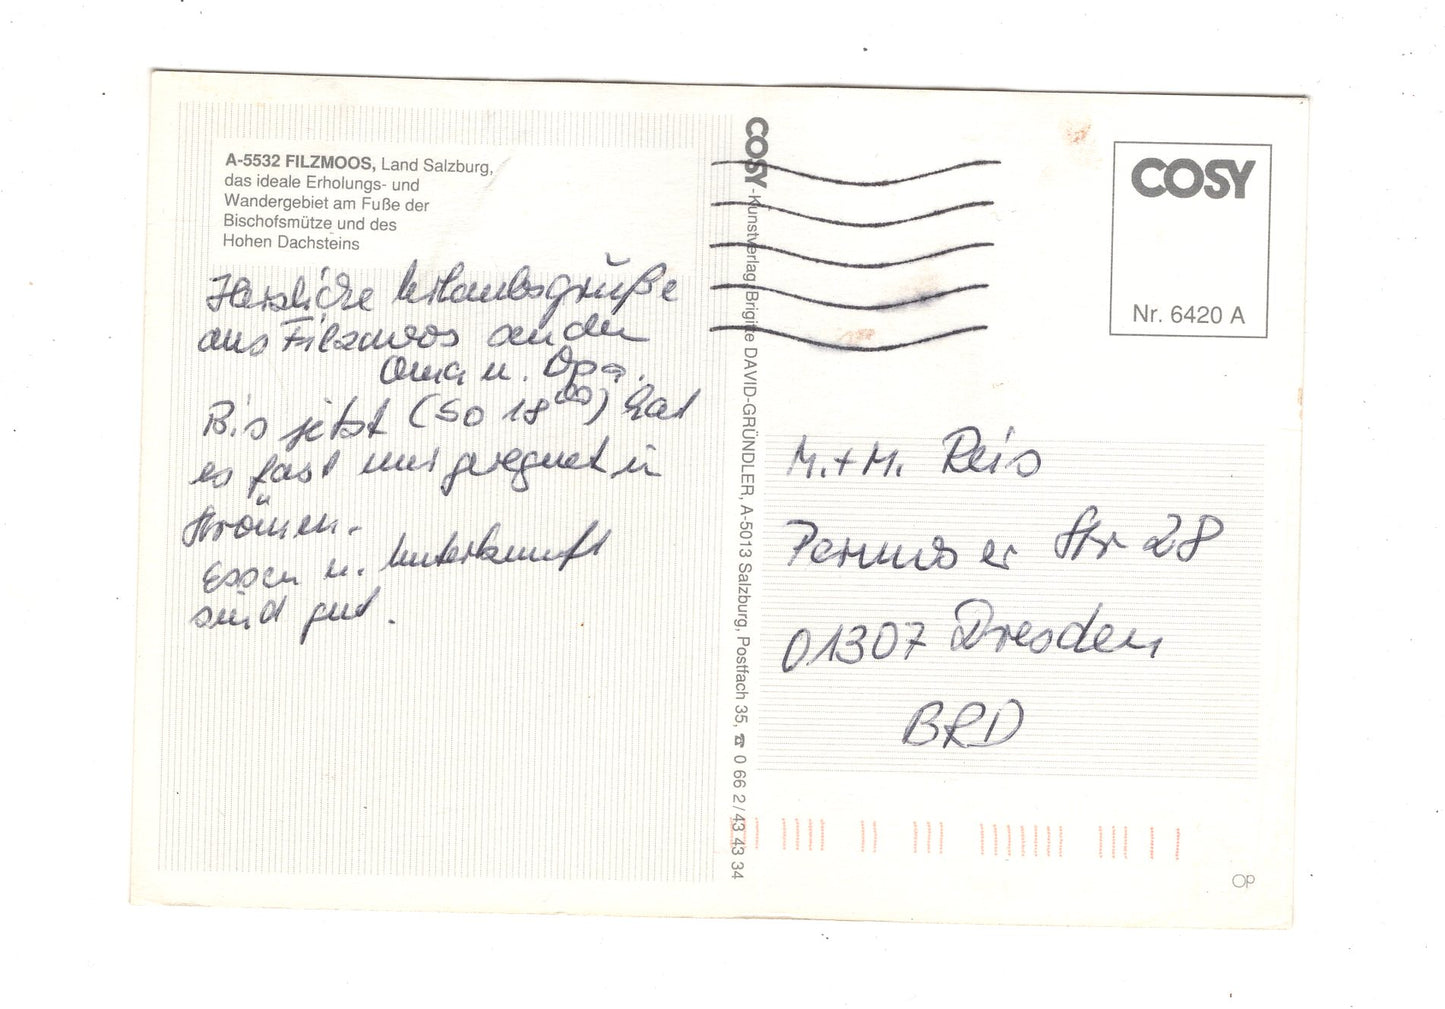 A-5532 FILZMOOS, Land Salzburg,
das ideale Erholungs- und
Wandergebiet am Fuße der
Bischofsmütze und des
Hohen Dachsteins
Herzliche Urlaubsgrüße
aus Filzmoos an den
Oma u. Opa.
Bis jetzt (So 18⁰⁰) hat
es fast nur geregnet in
Strömen.
Essen u. Unterkunft
sind gut.
COSY-Kunstverlag Brigitte DAVID-GRÜNDLER, A-5013 Salzburg, Postfach 35, ☎ 0 66 2/43 43 34
COSY
Nr. 6420 A
M.+M. Reis
er Str 28
01307 Dresden
BRD
OP